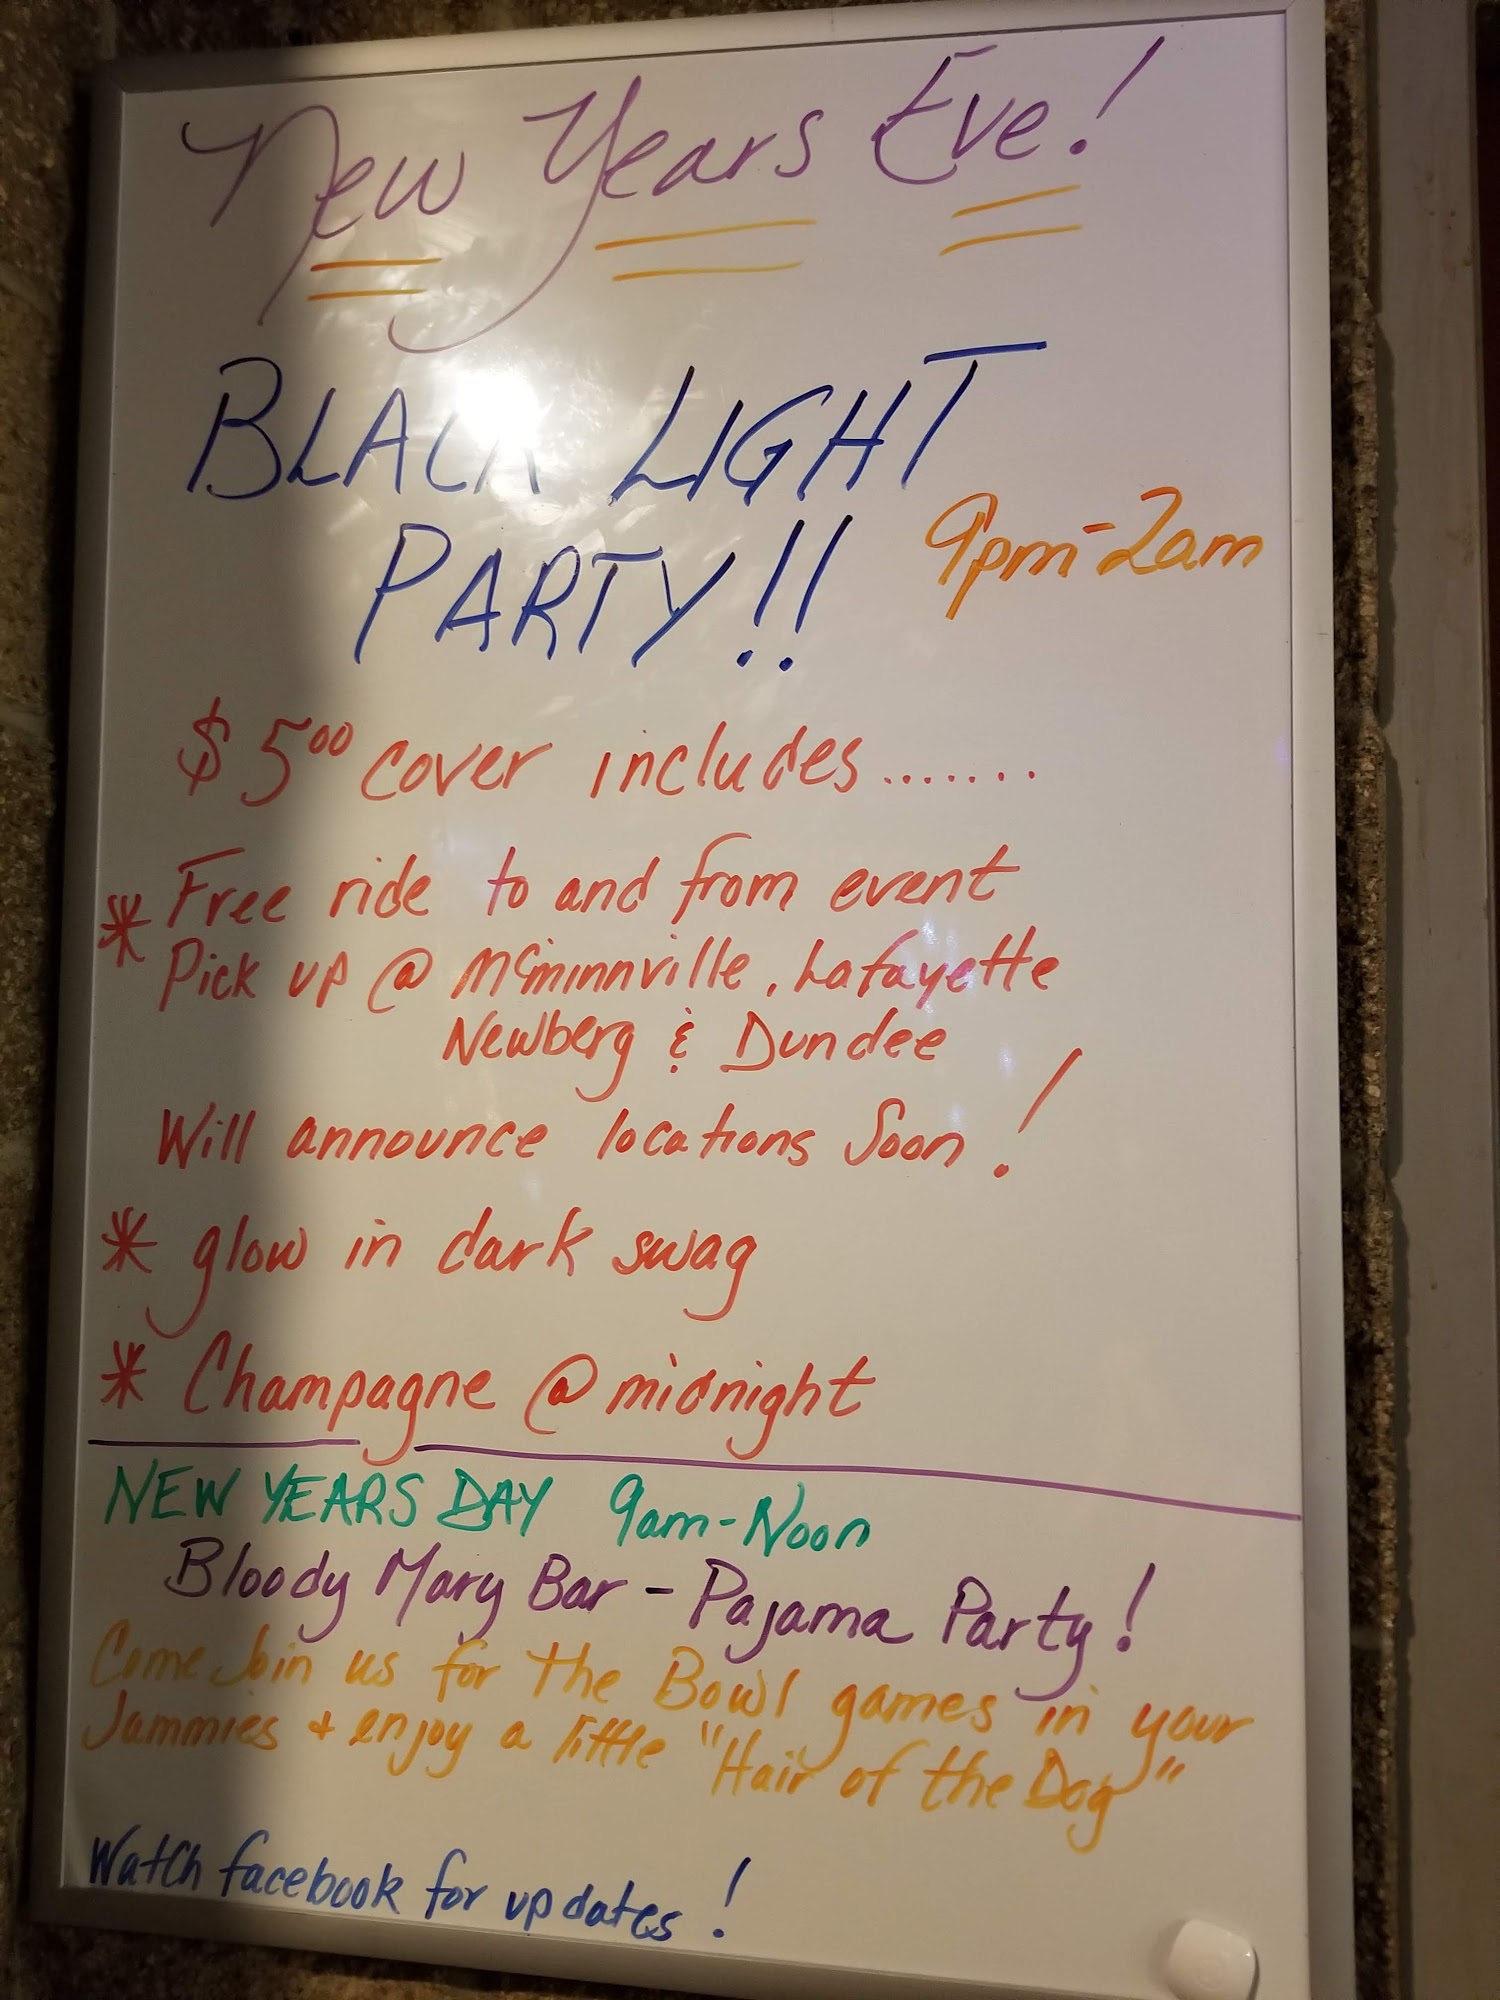 New Years Eve!
BLACK LIGHT
PARTY!! 9pm-2am
$5.00 cover includes.......
* Free ride to and from event
Pick up @ McMinnville, Lafayette
Newberg & Dundee
Will announce locations Soon!
* glow in dark swag
* Champagne @ midnight
NEW YEARS DAY 9am-Noon
Bloody Mary Bar - Pajama Party!
Come Join us for the Bowl games in your
Jammies + enjoy a little "Hair of the Dog"
Watch facebook for updates!